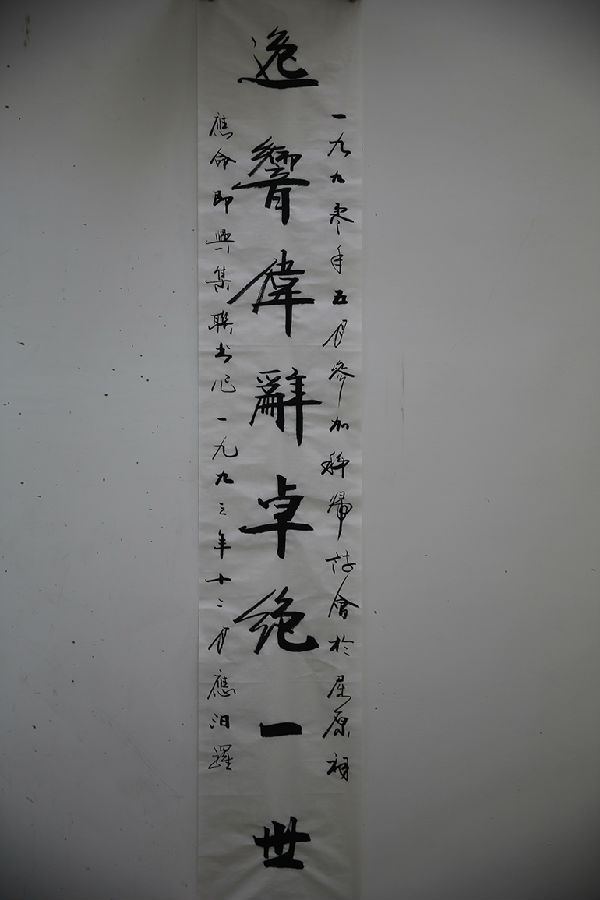 一九九零年五月參加秭歸诗會於屈原祠
逸響偉辭卓絶一世
應命即興集聯书 一九九三年十二月應汨羅